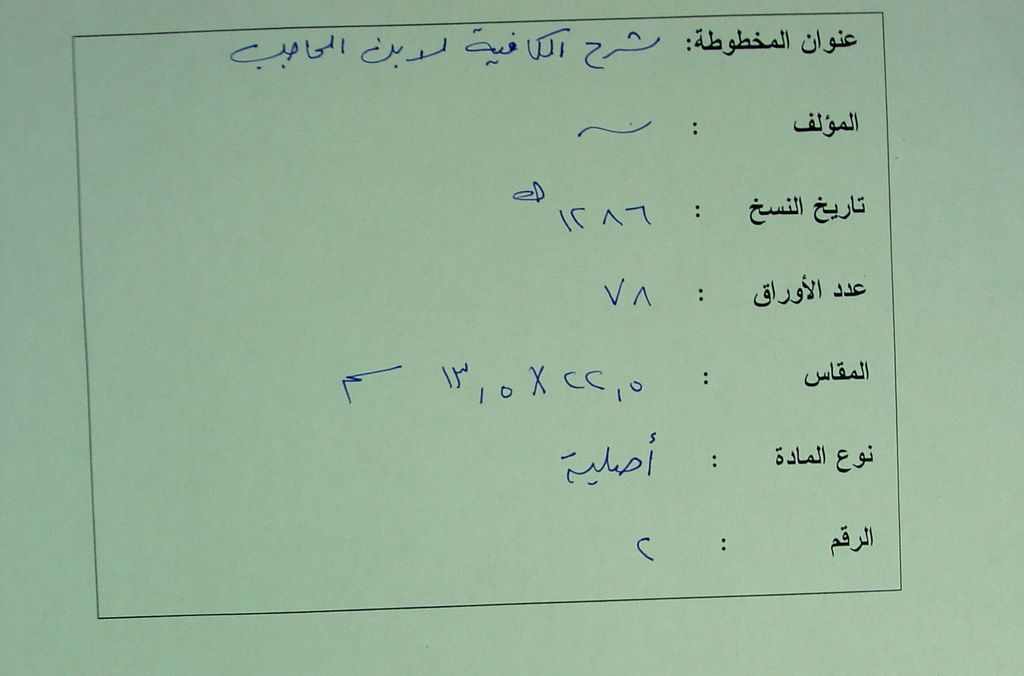 عنوان المخطوطة: شرح الكافية لابن الحاجب
المؤلف :
تاريخ النسخ : ١٢٨٦ هـ
عدد الأوراق : ٧٨
المقاس : ٢٢,٥ X ١٣,٥ سم
نوع المادة : أصلية
الرقم : ٢